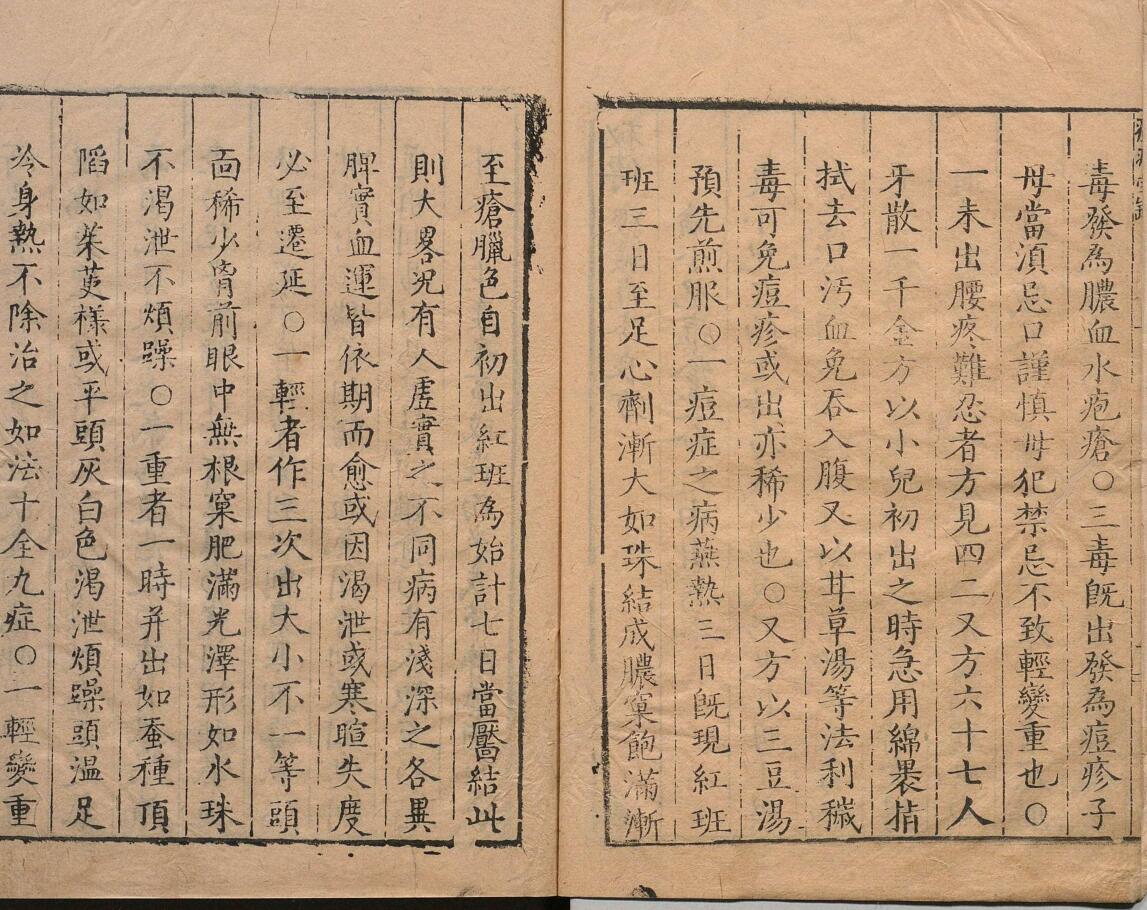 毒發為膿血水疱瘡〇三毒既出發為痘疹子
母當湏忌口謹慎毋犯禁忌不致輕變重也〇
一未出腰疼難忍者方見四二又方六十七人
牙散一千金方以小兒初出之時急用綿裹指
拭去口汚血免吞入腹又以甘草湯等法利穢
毒可免痘疹或出亦稀少也〇又方以三豆湯
預先煎服〇一痘症之病蒸熱三日既現紅班
班三日至足心劑漸大如珠結成膿窠飽滿漸
至瘡臘色自初出紅班為始計七日當靨結此
則大畧況有人虛實之不同病有淺深之各異
脾實血運皆依期而愈或因渴泄或寒暄失度
必至遷延〇一輕者作三次出大小不一等頭
面稀少胷前眼中無根窠肥滿光澤形如水珠
不渴泄不煩躁〇一重者一時并出如蚕種頂
陷如茱萸樣或平頭灰白色渴泄煩躁頭溫足
冷身熱不除治之如法十全九症〇一輕變重